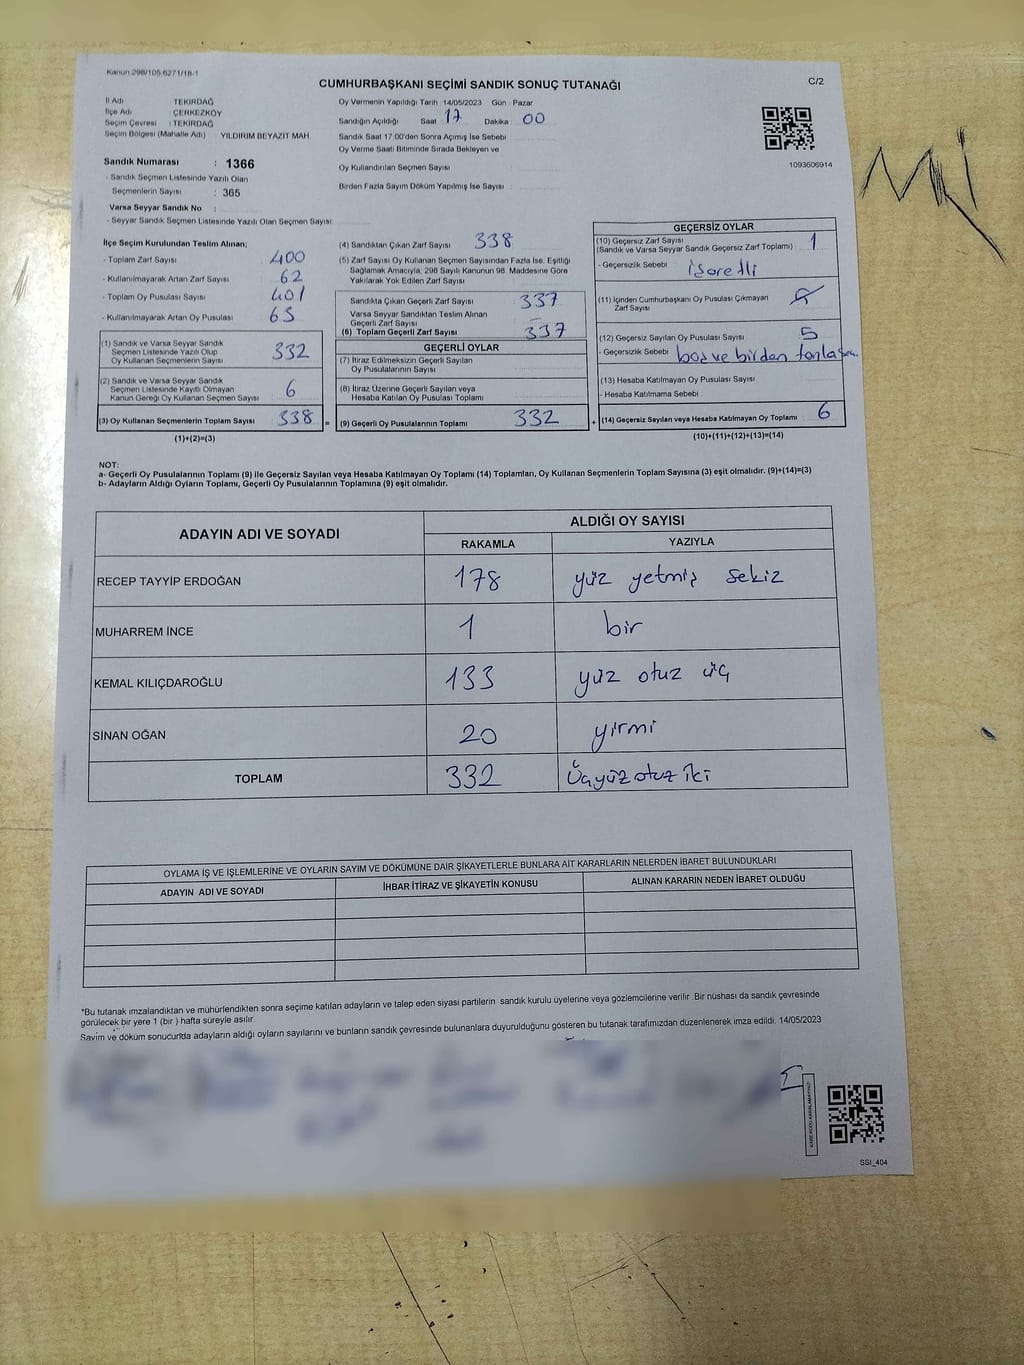 Kanun 298/105,6271/18-1
CUMHURBAŞKANI SEÇİMİ SANDIK SONUÇ TUTANAĞI
C/2
İl Adı TEKİRDAĞ
İlçe Adı ÇERKEZKÖY
Seçim Çevresi : TEKİRDAĞ
Seçim Bölgesi (Mahalle Adı) YILDIRIM BEYAZIT MAH.
Sandık Numarası : 1366
- Sandık Seçmen Listesinde Yazılı Olan
Seçmenlerin Sayısı : 365
Varsa Seyyar Sandık No :
- Seyyar Sandık Seçmen Listesinde Yazılı Olan Seçmen Sayısı:
Oy Vermenin Yapıldığı Tarih 14/05/2023 Gün : Pazar
Sandığın Açıldığı Saat 17 Dakika : 00
Sandık Saat 17.00'den Sonra Açımış İse Sebebi
Oy Verme Saati Bitiminde Sırada Bekleyen ve
Oy Kullandırılan Seçmen Sayısı
Birden Fazla Sayım Döküm Yapılmış İse Sayısı :
1093606914
Mi
İlçe Seçim Kurulundan Teslim Alınan;
- Toplam Zarf Sayısı : 400
- Kullanılmayarak Artan Zarf Sayısı : 62
- Toplam Oy Pusulası Sayısı : 401
- Kullanılmayarak Artan Oy Pusulası : 63
(1) Sandık ve Varsa Seyyar Sandık
Seçmen Listesinde Yazılı Olup
Oy Kullanan Seçmenlerin Sayısı 332
(2) Sandık ve Varsa Seyyar Sandık
Seçmen Listesinde Kayıtlı Olmayan
Kanun Gereği Oy Kullanan Seçmen Sayısı 6
(3) Oy Kullanan Seçmenlerin Toplam Sayısı 338
(1)+(2)=(3)
(4) Sandıktan Çıkan Zarf Sayısı 338
(5) Zarf Sayısı Oy Kullanan Seçmen Sayısından Fazla İse, Eşitliği
Sağlamak Amacıyla, 298 Sayılı Kanunun 98. Maddesine Göre
Yakılarak Yok Edilen Zarf Sayısı
Sandıkta Çıkan Geçerli Zarf Sayısı 337
Varsa Seyyar Sandıktan Teslim Alınan
Geçerli Zarf Sayısı
(6) Toplam Geçerli Zarf Sayısı 337
GEÇERLİ OYLAR
(7) İtiraz Edilmeksizin Geçerli Sayılan
Oy Pusulalarının Sayısı
(8) İtiraz Üzerine Geçerli Sayılan veya
Hesaba Katılan Oy Pusulası Toplamı
= (9) Geçerli Oy Pusulalarının Toplamı 332 +
GEÇERSİZ OYLAR
(10) Geçersiz Zarf Sayısı
(Sandık ve Varsa Seyyar Sandık Geçersiz Zarf Toplamı) : 1
- Geçersizlik Sebebi : işaretli
(11) İçinden Cumhurbaşkanı Oy Pusulası Çıkmayan
Zarf Sayısı
(12) Geçersiz Sayılan Oy Pusulası Sayısı 5
- Geçersizlik Sebebi : boş ve birden fazla
(13) Hesaba Katılmayan Oy Pusulası Sayısı
- Hesaba Katılmama Sebebi
(14) Geçersiz Sayılan veya Hesaba Katılmayan Oy Toplamı 6
(10)+(11)+(12)+(13)=(14)
NOT:
a- Geçerli Oy Pusulalarının Toplamı (9) ile Geçersiz Sayılan veya Hesaba Katılmayan Oy Toplamı (14) Toplamları, Oy Kullanan Seçmenlerin Toplam Sayısına (3) eşit olmalıdır. (9)+(14)=(3)
b- Adayların Aldığı Oyların Toplamı, Geçerli Oy Pusulalarının Toplamına (9) eşit olmalıdır.
ADAYIN ADI VE SOYADI
ALDIĞI OY SAYISI
RAKAMLA YAZIYLA
RECEP TAYYİP ERDOĞAN 178 yüz yetmiş sekiz
MUHARREM İNCE 1 bir
KEMAL KILIÇDAROĞLU 133 yüz otuz üç
SİNAN OĞAN 20 yirmi
TOPLAM 332 Üçyüzotuz iki
OYLAMA İŞ VE İŞLEMLERİNE VE OYLARIN SAYIM VE DÖKÜMÜNE DAİR ŞİKAYETLERLE BUNLARA AİT KARARLARIN NELERDEN İBARET BULUNDUKLARI
ADAYIN ADI VE SOYADI İHBAR İTİRAZ VE ŞİKAYETİN KONUSU ALINAN KARARIN NEDEN İBARET OLDUĞU
*Bu tutanak imzalandıktan ve mühürlendikten sonra seçime katılan adayların ve talep eden siyasi partilerin sandık kurulu üyelerine veya gözlemcilerine verilir .Bir nüshası da sandık çevresinde
görülecek bir yere 1 (bir ) hafta süreyle asılır.
Sayım ve döküm sonucunda adayların aldığı oyların sayılarını ve bunların sandık çevresinde bulunanlara duyurulduğunu gösteren bu tutanak tarafımızdan düzenlenerek imza edildi. 14/05/2023
SSI_404